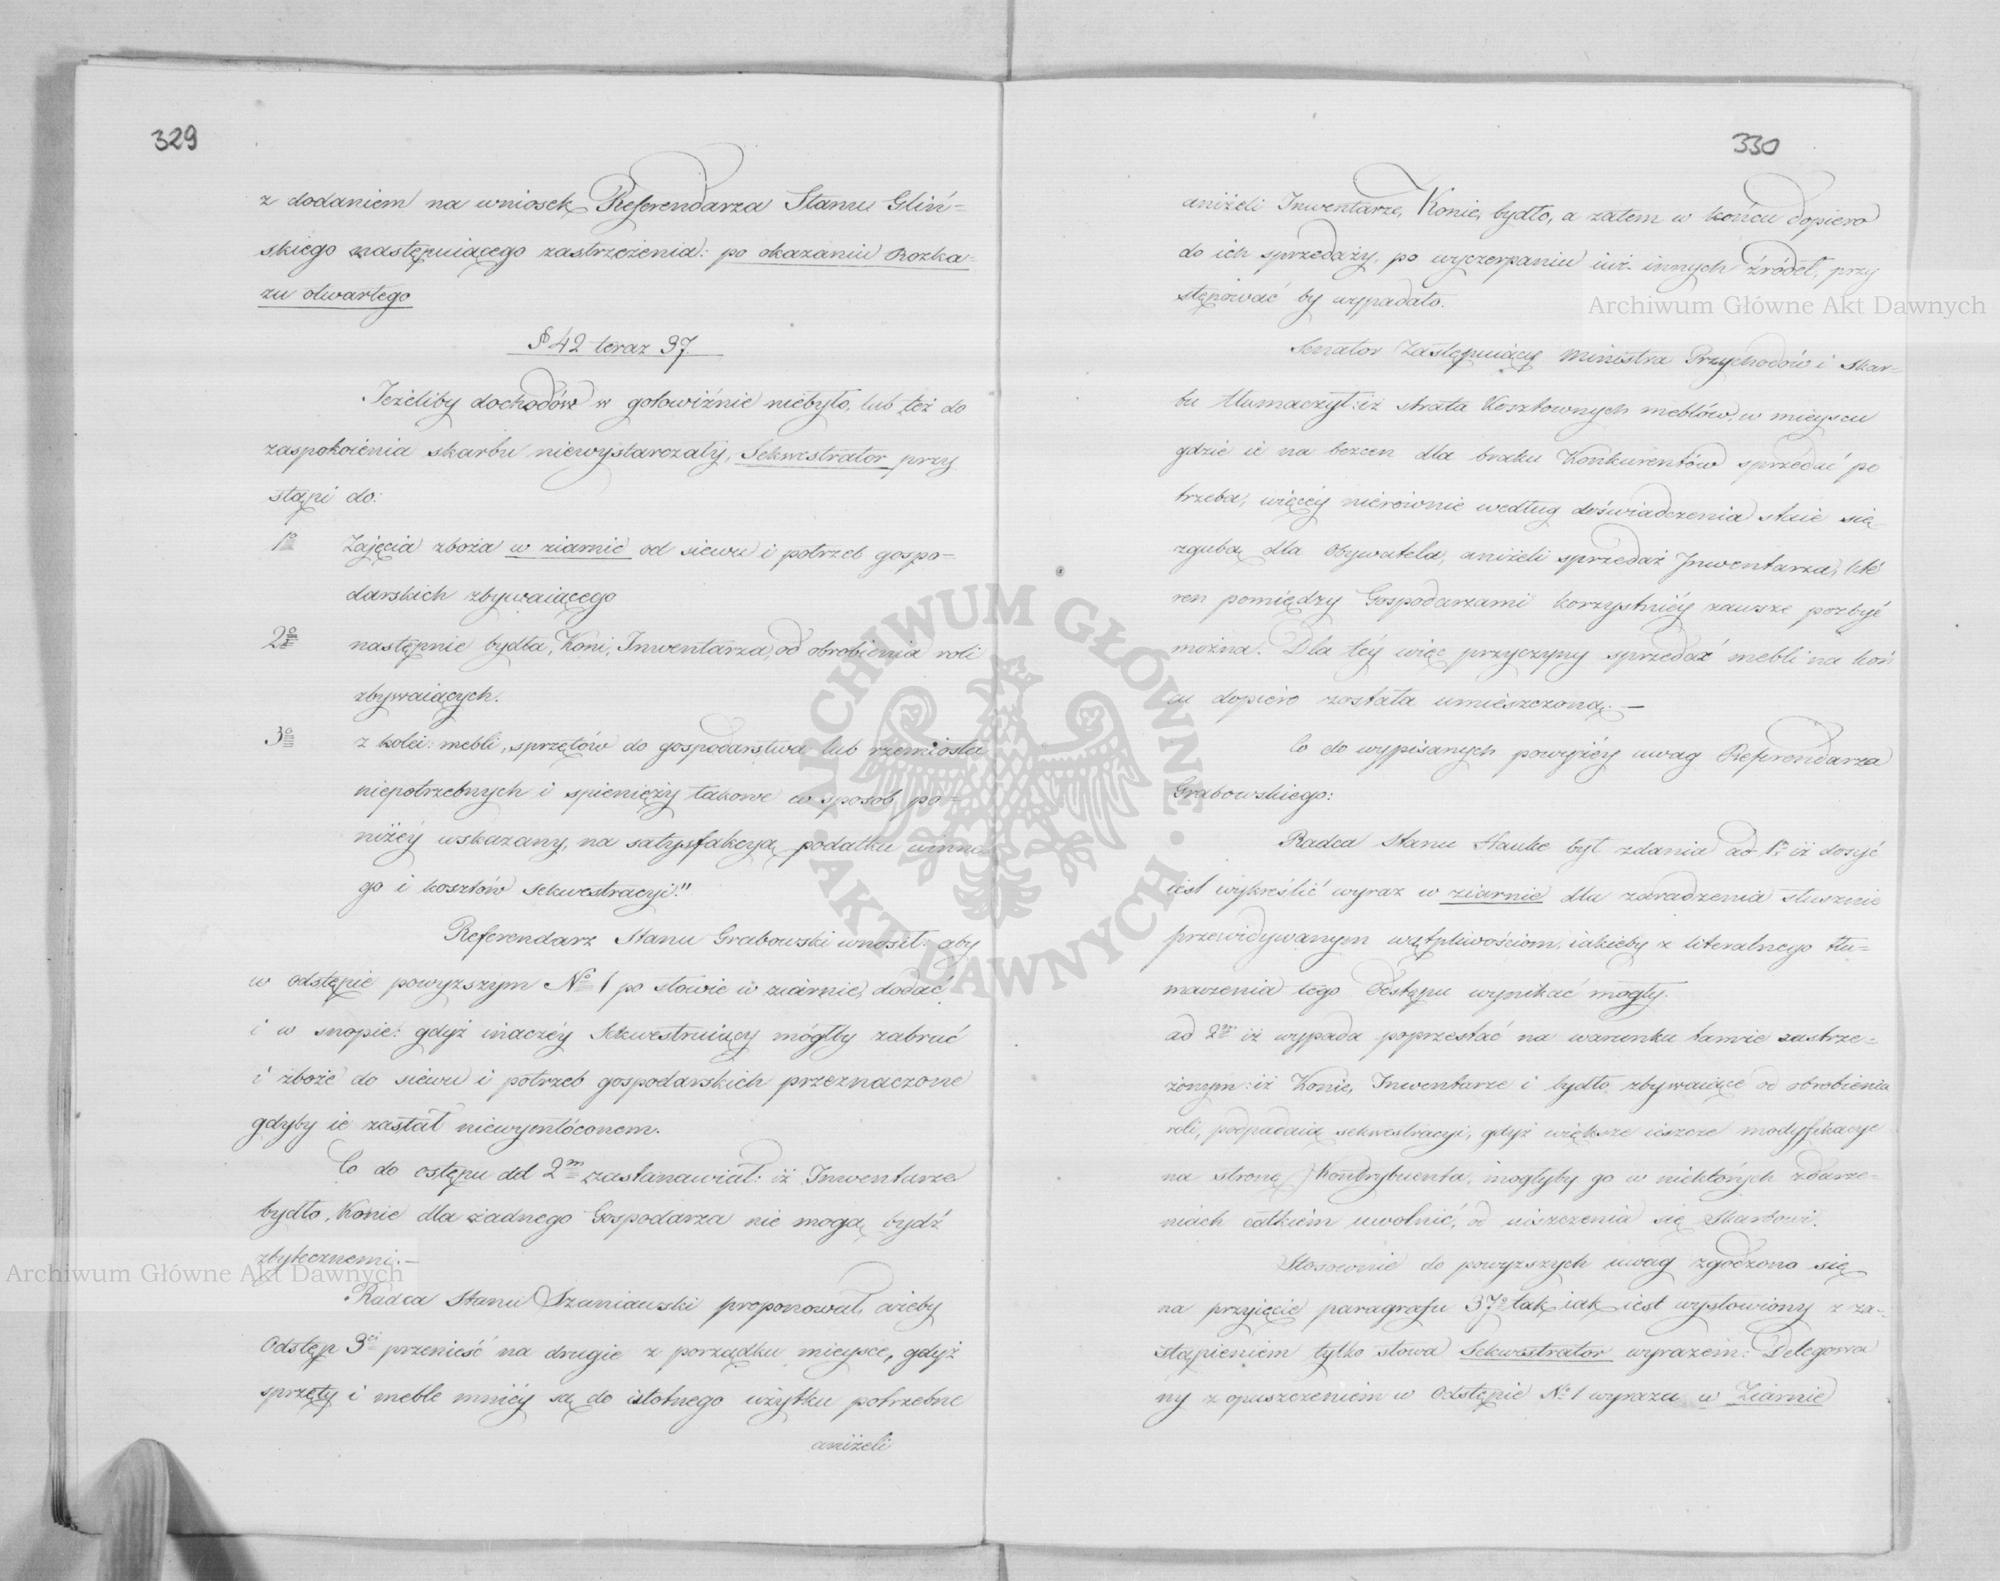 329
z dodaniem na wniosek Referendarza Stanu Gliń-
skiego następuiącego zastrzeżenia: po okazaniu Rozka-
zu otwartego
§ 42 teraz 37.
Jeżeliby dochodów w gotowiźnie niebyło, lub też do
zaspokoienia skarbu niewystarczały, Sekwestrator przy
stąpi do:
1o Zajęcia zboża w ziarnie od siewu i potrzeb gospo-
darskich zbywaiącego
2o następnie bydła, Koni, Inwentarza, od obrobienia roli
zbywaiących.
3o z kolei: mebli, sprzętów do gospodarstwa lub rzemiosła
niepotrzebnych i spienięży takowe w sposób po-
niżéy wskazany, na satysfakcyą podatku winne
go i kosztów sekwestracyi."
Referendarz Stanu Grabowski wnosił: aby
w odstępie powyższym No 1 po słowie w ziarnie, dodać
i w snopie: gdyż inaczéy Sekwestruiący mógłby zabrać
i zboże do siewu i potrzeb gospodarskich przeznaczone
gdyby ie zastał niewymłóconem.
Co do ostępu dd 2m zastanawiał: iż Inwentarze
bydło, Konie dla żadnego Gospodarza nie mogą bydź
zbytecznemi.—
Radca Stanu Szaniawski proponował, ażeby
Odstęp 3ci przenieść na drugie z porządku mieysce, gdyż
sprzęty i meble mniéy są do istotnego użytku potrzebne
aniżeli
330
aniżeli Inwentarze, Konie, bydło, a zatem w końcu dopiero
do ich sprzedaży, po wyczerpaniu iuż innych źródeł, przy
stępować by wypadało.
Senator Zastępuiący Ministra Przychodów i Skar-
bu tłumaczył: iż strata Kosztownych meblów, w mieyscu
gdzie ie na bezcen dla braku Konkurentów sprzedać po
trzeba, więcéy nierównie według doświadczenia staie się
zgubą dla Obywatela, aniżeli sprzedaż Inwentarza, któ
ren pomiędzy Gospodarzami korzystniéy zawsze pozbyć
można. Dla téy więc przyczyny sprzedaż mebli na koń
cu dopiero została umieszczoną.—
Co do wypisanych powyżéy uwag Referendarza
Grabowskiego:
Radca Stanu Hauke był zdania ad 1m iż dosyć
iest wykreślić wyraz w ziarnie dla zaradzenia słusznie
przewidywanym wątpliwościom, iakieby z literalnego tłu-
maczenia tego Odstępu wynikać mogły.
ad 2m iż wypada poprzestać na warunku tamże zastrze-
żonym: iż Konie, Inwentarze i bydło zbywaiące od obrobienia
roli, podpadaią sekwestracyi, gdyż większe ieszcze modyfikacye
na stronę Kontrybuenta, mogłyby go w niektórych zdarze-
niach całkiem uwolnić, od uiszczenia się Skarbowi.
Stosownie do powyższych uwag zgodzono się
na przyięcie paragrafu 37o tak iak iest wysłowiony z za-
stąpieniem tylko słowa Sekwestrator wyrazem: Delegowa
ny z opuszczeniem w Odstępie No 1 wyrazu w Ziarnie
Archiwum Główne Akt Dawnych
Archiwum Główne Akt Dawnych
ARCHIWUM GŁÓWNE · AKT DAWNYCH ·